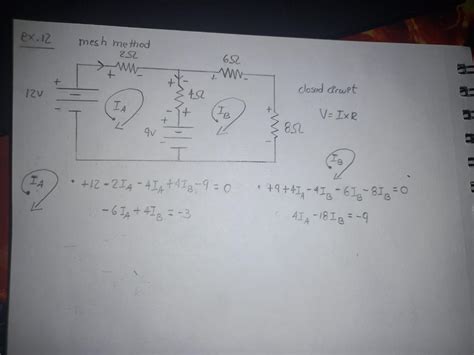 ex.12 mesh method
2Ω 6Ω
+ + - + -
12V + 4Ω closed circuit
I_A I_B + 8Ω V = I×R
- 9V + - -
I_A • +12 - 2I_A - 4I_A + 4I_B - 9 = 0 • +9 + 4I_A - 4I_B - 6I_B - 8I_B = 0 I_B
-6I_A + 4I_B = -3 4I_A - 18I_B = -9